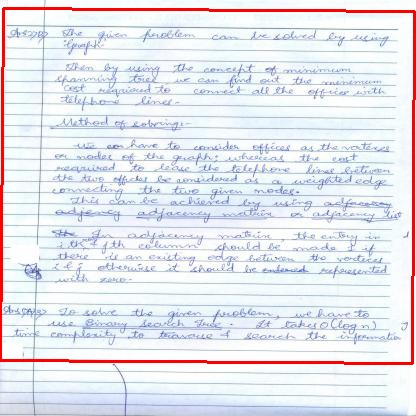 Ans 2) The given problem can be solved by using
"Graph"
Then by using the concept of minimum
spanning tree we can find out the minimum
cost required to connect all the offices with
telephone lines.
Method of solving:-
We have to consider offices as the vertices
or nodes of the graph; whereas the cost
required to lease the telephone lines between
the two offices be considered as a weighted edge
connecting the two given nodes.
This can be achieved by using
adjacency matrix or adjacency list
In adjacency matrix, the entry in
ith & jth column should be made 1 if
there is an existing edge between the vertices
i & j otherwise it should be represented
with zero.
To solve the given problem, we have to
use Binary search Tree. It takes O(logn)
time complexity to traverse & search the information